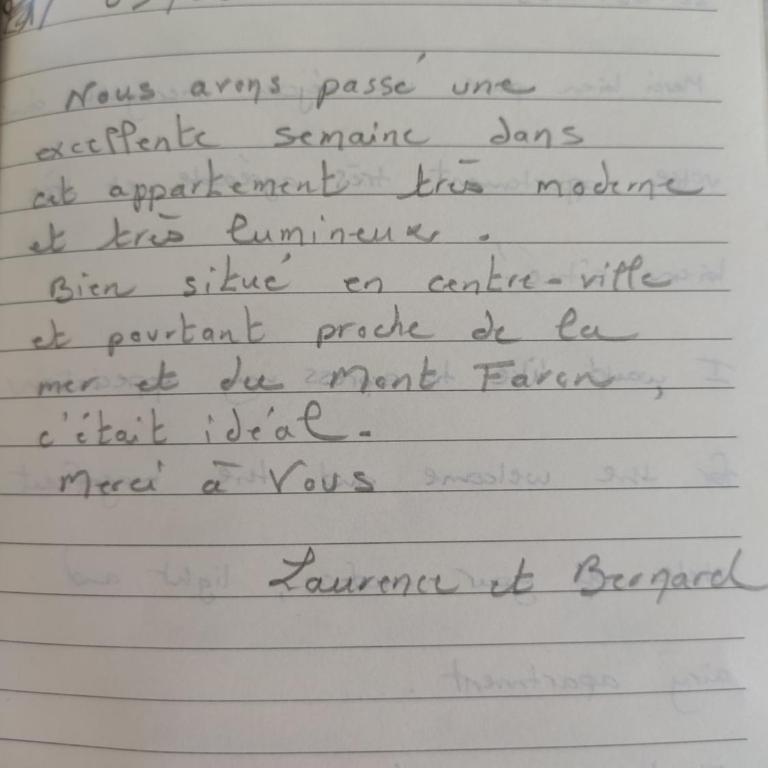 Nous avons passé une
excellente semaine dans
cet appartement très moderne
et très lumineux.
Bien situé en centre-ville
et pourtant proche de la
mer et du Mont Faron,
c'était idéal.
Merci à Vous
Laurence et Bernard